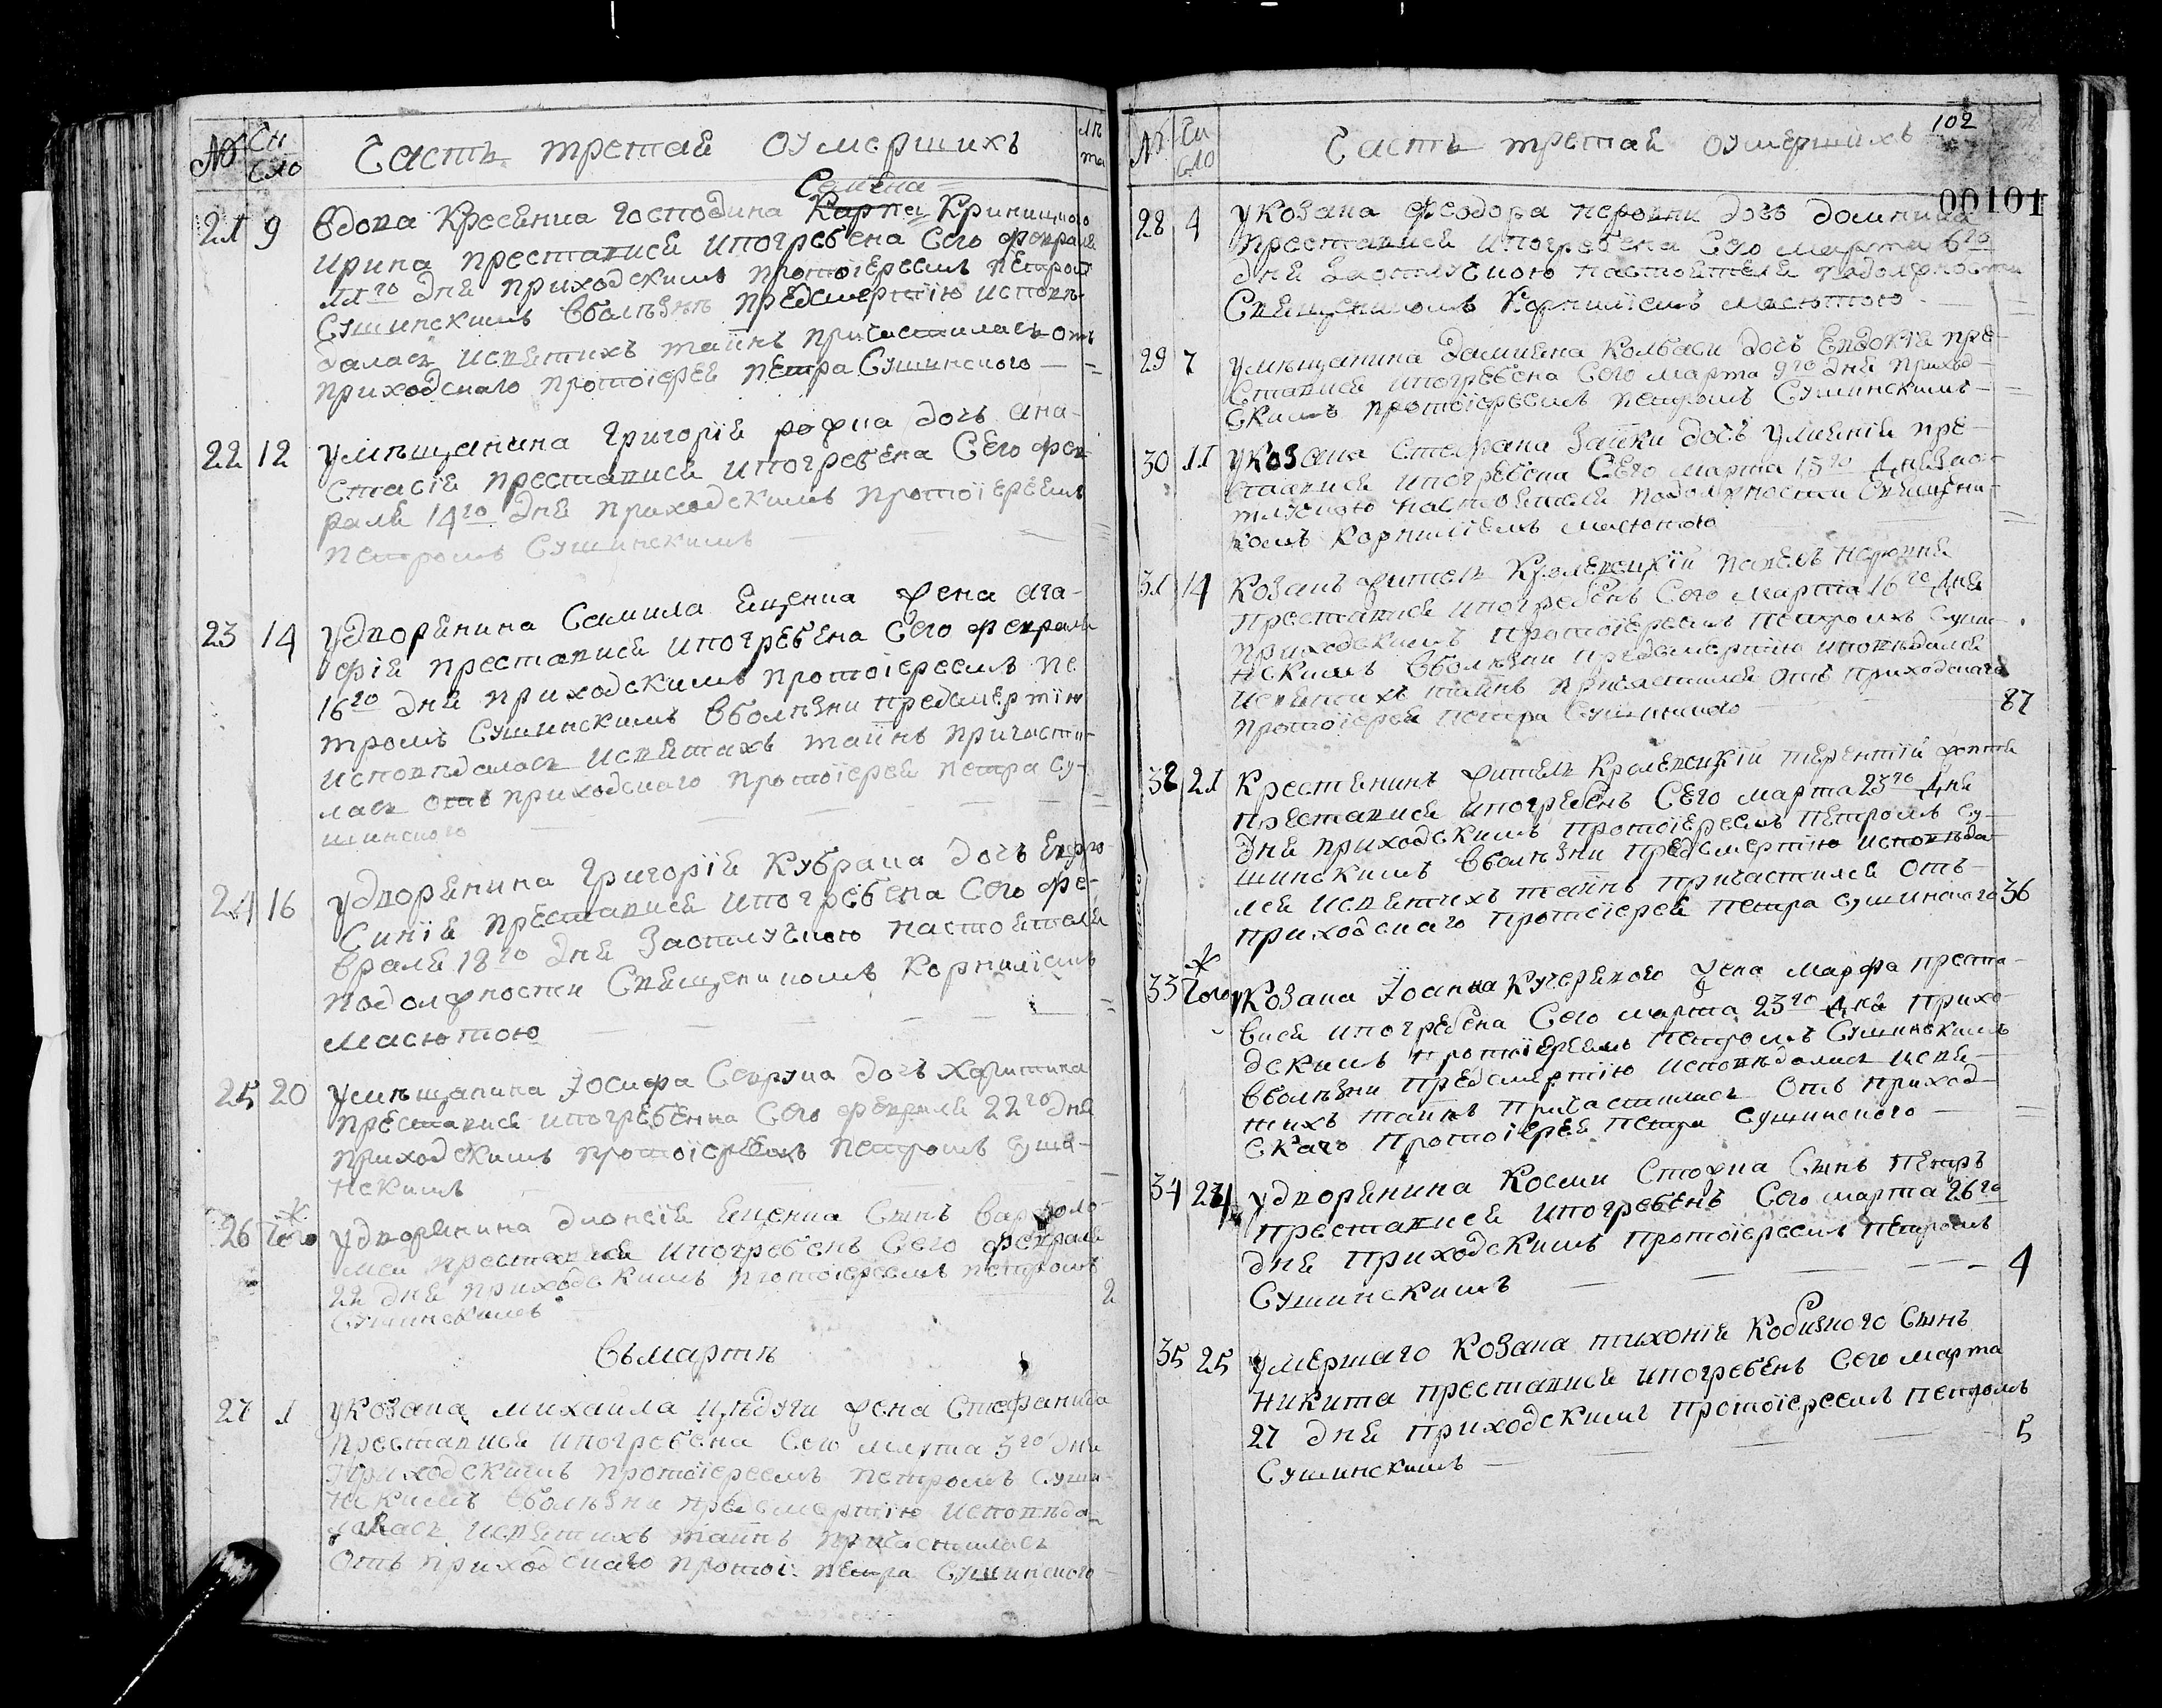 № Чи сло Часть третая оумершихъ лѣ та
Семена
21 9 вдова Кресвниа господина Карпа Криницкого
ирина преставися ипогребена Сего февраля
11го дня приходскимъ протоіереемъ петромъ
Сушинскимъ вболѣзнѣ предсмертію исповѣ-
далась исвятихъ таинъ причастилась отъ
приходскаго протоіерея петра Сушинского
22 12 умѣщанина григорія дочь ана-
стасія преставися ипогребена Сего фев-
раля 14го дня приходскимъ протоіереемъ
петромъ Сушинскимъ
23 14 удворянина Самила Ещенка жена ага-
фія преставися ипогребена Сего февраля
16го дня приходскимъ протоіереемъ пе
тромъ Сушинскимъ вболѣзни предсмертію
исповѣдалась исвятихъ таинъ причасти-
лась отъ приходскаго протоіерея петра Су-
шинского
24 16 удворянина григорія Кубрака дочь Евфро-
синія преставися ипогребена Сего фе-
враля 18го дня Заотлучкою настоятеля
подолжности Священникомъ Корниліемъ
масютою
25 20 умѣщанина Іосифа Севрука дочь харитина
преставися ипогребенна Сего февраля 22го дня
приходскимъ протоіереемъ петромъ Суши-
нскимъ
26 того удворянина дионсія Ещенка Сынъ варфоло-
меи преставися ипогребенъ Сего февраля
22 дня приходскимъ протоіереемъ петромъ
Сушинскимъ 2
Вьмартѣ
27 1 укозака михаила жена Стефанида
преставися ипогребена Сего марта 3го дня
приходскимъ протоіереемъ петромъ Суши-
нскимъ вболѣзни предсмертію исповѣда-
лась исвятихъ таинъ причастилась
отъ приходскаго протоі: петра Сушинского
102
№ Чи сло Часть третая оумершихъ
00101
28 4 укозака феодора дочь домникиа
преставися ипогребена Сего марта 6го
дня Заотлучкою настоятеля подолжности
Священикомъ Корниліемъ масютою
29 7 умѣщанина дамияна Колбаси дочь Евдокія пре-
ставися ипогребена Сего марта 9го дня приход-
скимъ протоіереемъ петромъ Сушинскимъ
30 11 укозака Стефана Заики дочь улианія пре-
ставися ипогребена Сего марта 13го дня зао-
тлучкою настоятеля подолжности Священи-
комъ Корниліемъ масютою
31 14 Козакъ житель Кролевецкій павелъ
преставися ипогребенъ Сего марта 16го дня
приходскимъ протоіереемъ петромъ Суши-
нскимъ вболѣзни предсмертію исповѣдался
исвятихъ таинъ причастился отъ приходскаго
протоіерея петра Сушинского 87
32 21 Крестянинъ житель Кролевецкій терентій
преставися ипогребенъ Сего марта 23го дня
дня приходскимъ протоіереемъ петромъ Су-
шинскимъ вболѣзни предсмертію исповѣда-
лся исвятихъ таинъ причастился отъ-
приходскаго протоіерея петра Сушинского 36
33 того укозака Іоанна Кучерявого жена марфа преста-
вися ипогребена Сего марта 23го дня прихо-
дскимъ протоіереемъ петромъ Сушинскимъ
вболѣзни предсмертію исповѣдалась исвя-
тихъ таинъ причастилась отъ приход-
скаго протоіерея петра Сушинского
34 24 удворянина Косми Стожка Сынъ петръ
преставися ипогребенъ Сего марта 26го
дня приходскимъ протоіереемъ петромъ
Сушинскимъ 4
35 25 умершаго Козака тихонія Кобизкого Сынъ
никита преставися ипогребенъ Сего марта
27 дня приходскимъ протоіереемъ петромъ
Сушинскимъ 5